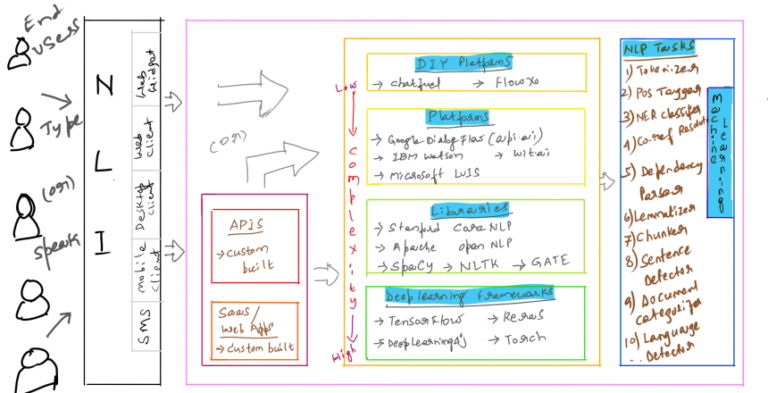 End
users
Type
(or)
Speak
N
L
I
Web
Widget
Web
client
Desktop
client
Mobile
client
SMS
(or)
APIS
→ custom
built
SaaS/
Web Apps
→ custom built
Low
complexity
High
DIY Platforms
→ chatfuel → Flowxo
Platforms
→ Google Dialog Flow (api.ai)
→ IBM Watson → wit.ai
→ Microsoft LUIS
Libraries
→ Stanford Core NLP
→ Apache open NLP
→ SpaCy → NLTK → GATE
Deeplearning frameworks
→ TensorFlow → Keras
→ Deeplearning4j → Torch
NLP Tasks
1) Tokenizer
2) Pos Tagger
3) NER classifier
4) Co-ref Resolute
5) Dependency
Parser
6) Lemmatizer
7) Chunker
8) Sentence
Detector
9) Document
categorizer
10) Language
Detector
Machine
Learning